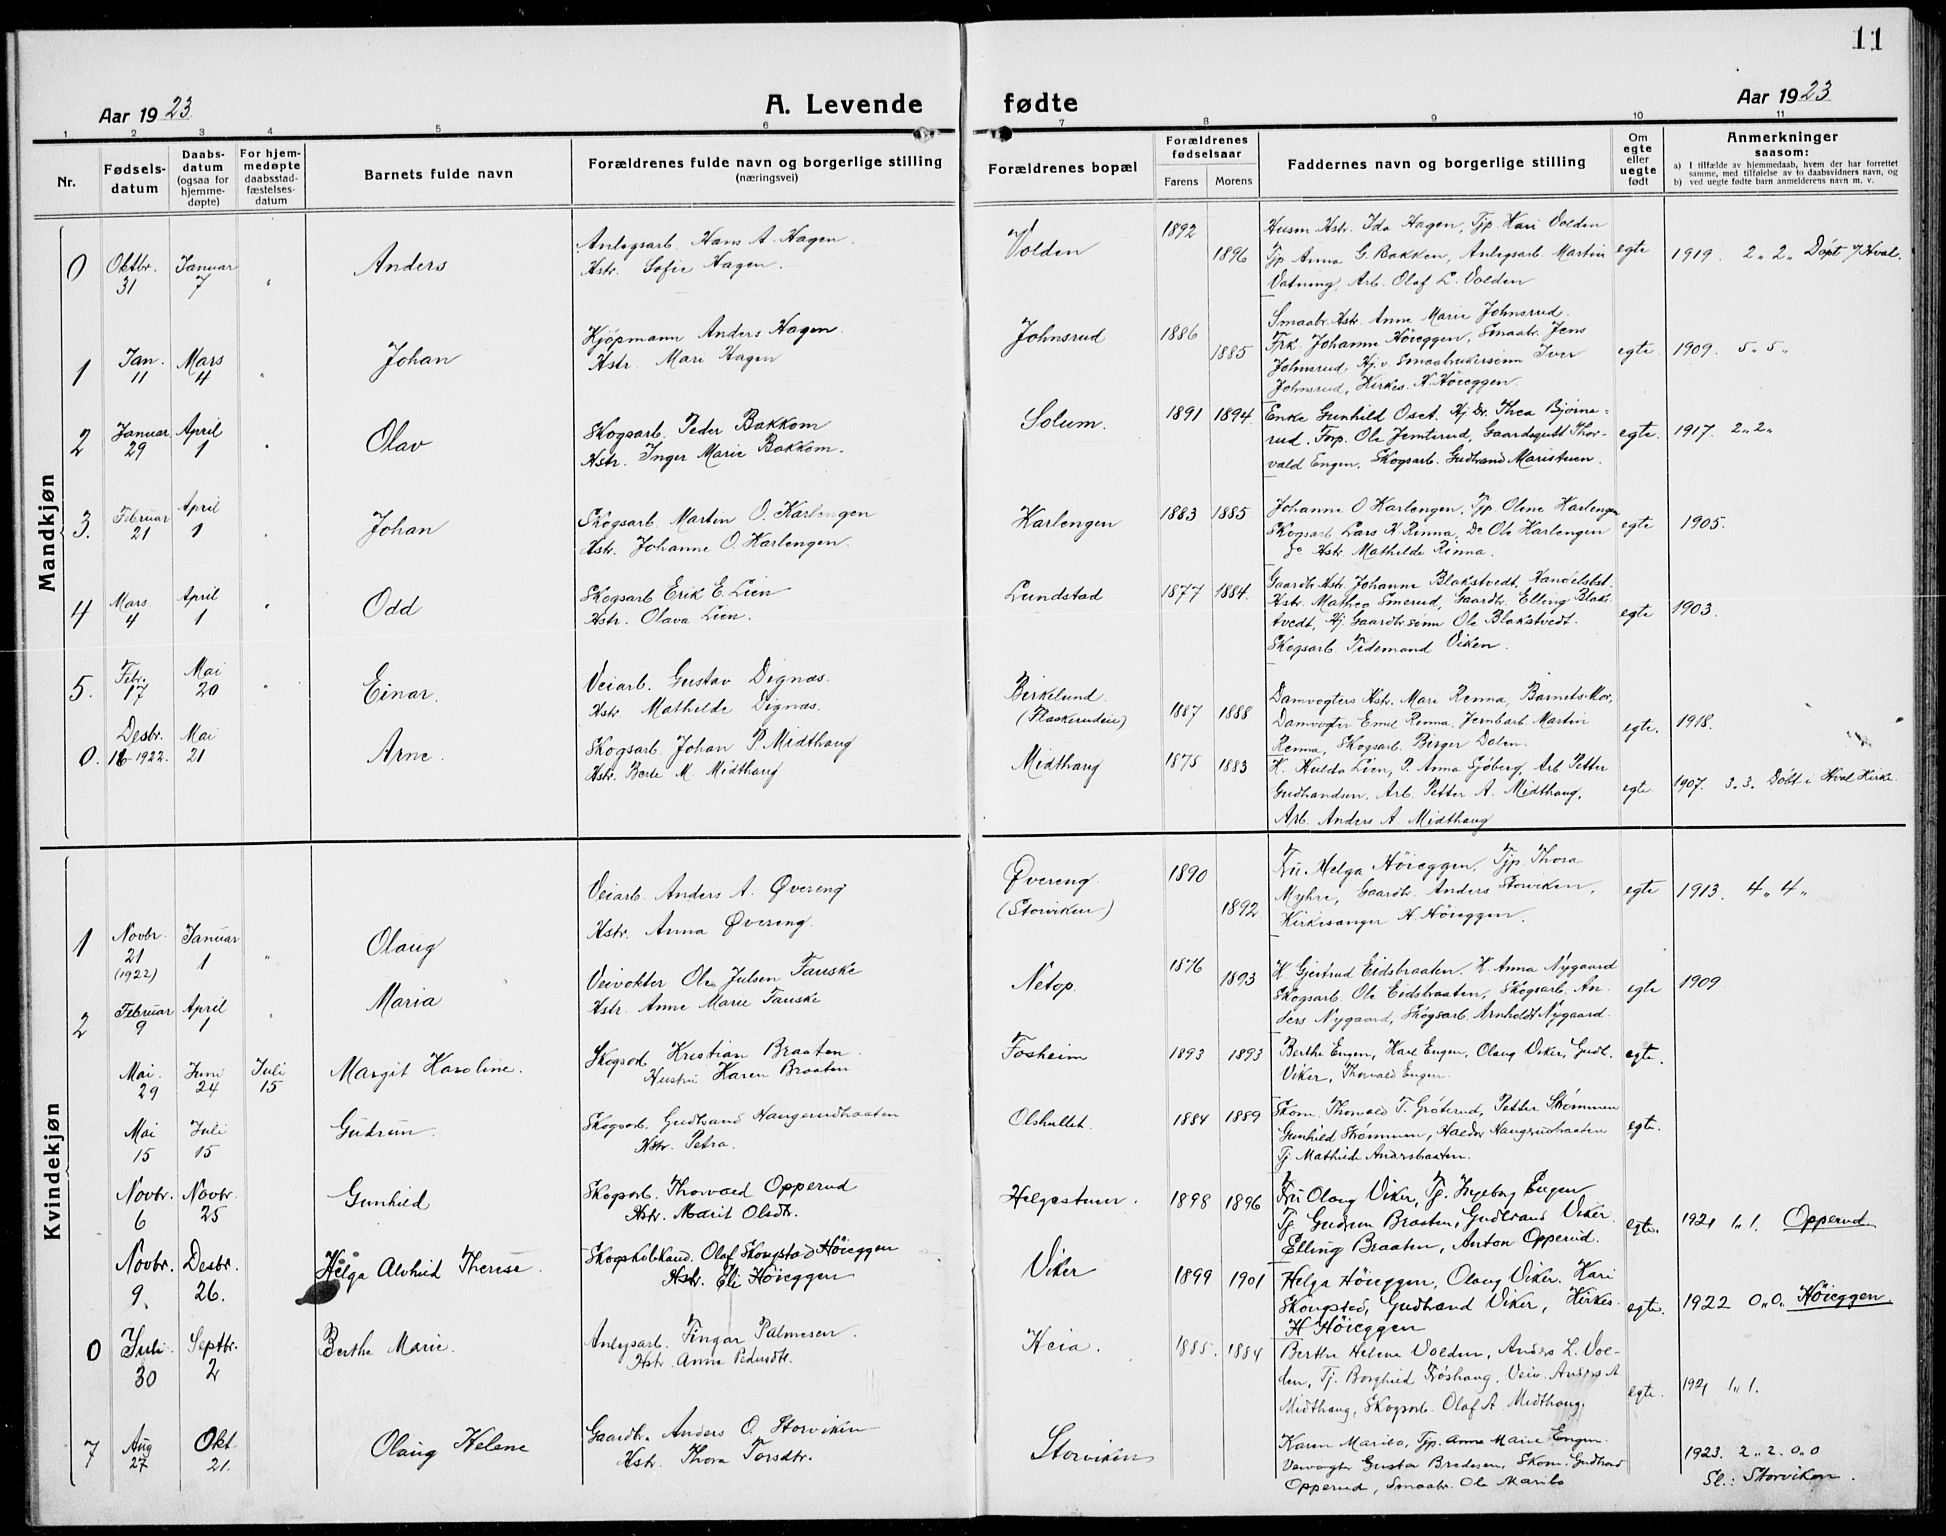 11
Aar 1923
A. Levende
fødte
Aar 1923
1 2 3 4 5 6 7 8 9 10 11
Nr.
Fødsels-
datum
Daabs-
datum
(ogsaa for
hjemme-
døpte)
For hjem-
medøpte
daabsstad-
fæstelses-
datum
Barnets fulde navn
Forældrenes fulde navn og borgerlige stilling
(næringsvei)
Forældrenes bopæl
Forældrenes
fødselsaar
Farens Morens
Faddernes navn og borgerlige stilling
Om
egte
eller
uegte
født
Anmerkninger
saasom:
a) I tilfælde av hjemmedaab, hvem der har forrettet
samme, med tilføielse av to daabsvidners navn, og
b) ved uegte fødte barn anmelderens navn m. v.
Mandkjøn
0 Oktbr. 31 Januar 7 " Anders
Anlegsarb. Hans A. Hagen.
Hstr. Sofie Hagen.
Volden 1892 1896
Husm. Hstr. Ida Hagen, Tjp. Kari Volden
Tjp. Anna G. Bakken, Anlegsarb. Martin
Vatning, Arb. Olaf L. Volden
egte 1919. 2 " 2 " Døpt i Hval.
1 Jan. 11 Mars 4 " Johan
Kjøpmann Anders Hagen.
Hstr. Mari Hagen
Johnsrud 1886 1885
Smaabr. Hstr. Anne Marie Johnsrud.
Frk. Johanne Höieggen, Smaabr. Jens
Johnsrud, Hj.v. Smaabrukersønn Iver
Johnsrud, Kirkes. H. Höieggen.
egte. 1909. 5 " 5 "
2 Januar 29 April 1 " Olav
Skogsarb. Peder Bakkom
Hstr. Inger Marie Bakkom.
Solum. 1891 1894
Enke Gunhild Oset. Hj. Dr. Thea Bjørne-
rud. Forp. Ole Jemterud, Gaardsgutt Thor-
vald Engen, Skogsarb. Gudbrand Maristuen.
egte. 1917. 2 " 2 "
3. Februar 21 April 1 Johan
Skogsarb. Martin O. Karlengen
Hstr. Johanne O. Karlengen.
Karlengen 1883 1885
Johanne O Karlengen, Tjp. Oline Karlengen
Skogsarb Lars K Renna, Do Ole Karlengen
do Hstr. Mathilde Renna.
egte 1905.
4 Mars 4 April 1 " Odd
Skogsarb Erik E. Lien
Hstr. Olava Lien.
Lundstad 1877 1884.
Gaardbr. Hstr. Johanne Blakstvedt, Handelsbst.
Hstr. Mathea Smerud, Gaardbr. Elling Blaks-
tvedt, Hj. Gaardbr.sønn Ole Blakstvedt.
Skogsarb. Tidemand Viken.
egte 1903.
5. Febr. 17 Mai 20 " Einar.
Veiarb. Gustav Dignæs.
Hstr. Mathilde Dignæs.
Birkelund 1887 1888
Damvogters Hstr. Mari Renna, Barnets Mor,
Damvogter Emil Renna, Jernbarb Martin
Renna, Skogsarb. Birger Dalen.
egte. 1918.
0. Desbr. 16-1922. Mai 21 Arne.
Skogsarb. Johan P. Midthaug
Hstr. Berte M Midthaug
Midthaug 1875 1883
H. Hulda Lien, P. Anna Sjøberg, Arb. Petter
Gudbrandsen, Arb. Petter A. Midthaug,
Arb. Anders A Midthaug
egte. 1907. 3 " 3. Døbt i Hval Kirke.
Kvindekjøn
1 Novbr. 21 (1922) Januar 1 " Olaug
Veiarb. Anders A. Øvereng
Hstr. Anna Øvereng.
Øvereng.
(Storviken) 1890 1892
Fru Helga Höieggen, Tjp. Thora
Myhre, Gaardbr. Anders Storviken,
Kirkesanger H. Höieggen.
egte 1913. 4 " 4 "
2 Februar 9 April 1 " Maria
Veivokter Ole Julsen Fauske
Hstr. Anne Marie Fauske
Netop. 1876 1893
H. Gjertrud Eidsbraaten. H. Anna Nygaard
Skogsarb. Ole Eidsbraaten, Skogsarb. An-
ders Nygaard, Skogsarb. Arnholdt Nygaard.
egte 1909
Mai 29 Juni 24 Juli 15 Margit Karoline.
Skogsarb. Kristian Braaten.
Hustru Karen Braaten
Fosheim 1893 1893
Berthe Engen, Karl Engen, Olaug Viker, Gudb.
Viker, Thorvald Engen.
egte.
Mai 15 Juli 15 Gudrun.
Skogsarb. Gudbrand Haugerudbraaten
Hstr. Petra.
Olshullet. 1884 1889
Skom. Thorvald T. Grøterud, Petter Strømmen
Gunhild Strømmen, Haldor Haugrudbraaten
Tj. Mathilde Andersbraaten.
egte.
Novbr. 6 Novbr. 25 Gunhild
Skogsarb. Thorvald Opperud
Hstr. Marit Olsdtr.
Helgestuen. 1898 1896
Fru Olaug Viker, Tj. Ingeborg Engen
Tj. Gudrun Braaten, Gudbrand Viker.
Elling Braaten, Anton Opperud.
egte. 1921 1 " 1. Opperud
Novbr. 9. Desbr. 26. Helga Alvhild Therese.
Olaf Skougstad Höieggen
Hstr. Eli Höieggen
Viker 1899 1901
Helga Höieggen, Olaug Viker. Kari
Skougstad, Gudbrand Viker, Kirkes.
H Höieggen
egte. 1922 0 " 0 " Höieggen
0 Juli 30 Septbr. 2 Berthe Marie.
Anlegsarb. Fingar Palmesen.
Hstr. Anne Pedersdtr.
Heia. 1885. 1884
Berthe Helene Volden, Anders L. Vol-
den, Tj. Borghild Frøshaug, Veiv. Anders A
Midthaug, Skogsarb. Olaf A. Midthaug.
egte. 1921 1 " 1.
7 Aug 27 Okt. 21. Olaug Helene
Gaardbr. Anders O. Storviken
Hstr. Thora Torsdtr.
Storviken
Karen Maribo, Tjp. Anne Marie Engen.
Veivogter Gustav Bredesen, Skom. Gudbrand
Opperud, Smaabr. Ole Maribo
1923. 2 " 2. 0 " 0
Sl.: Storviken.